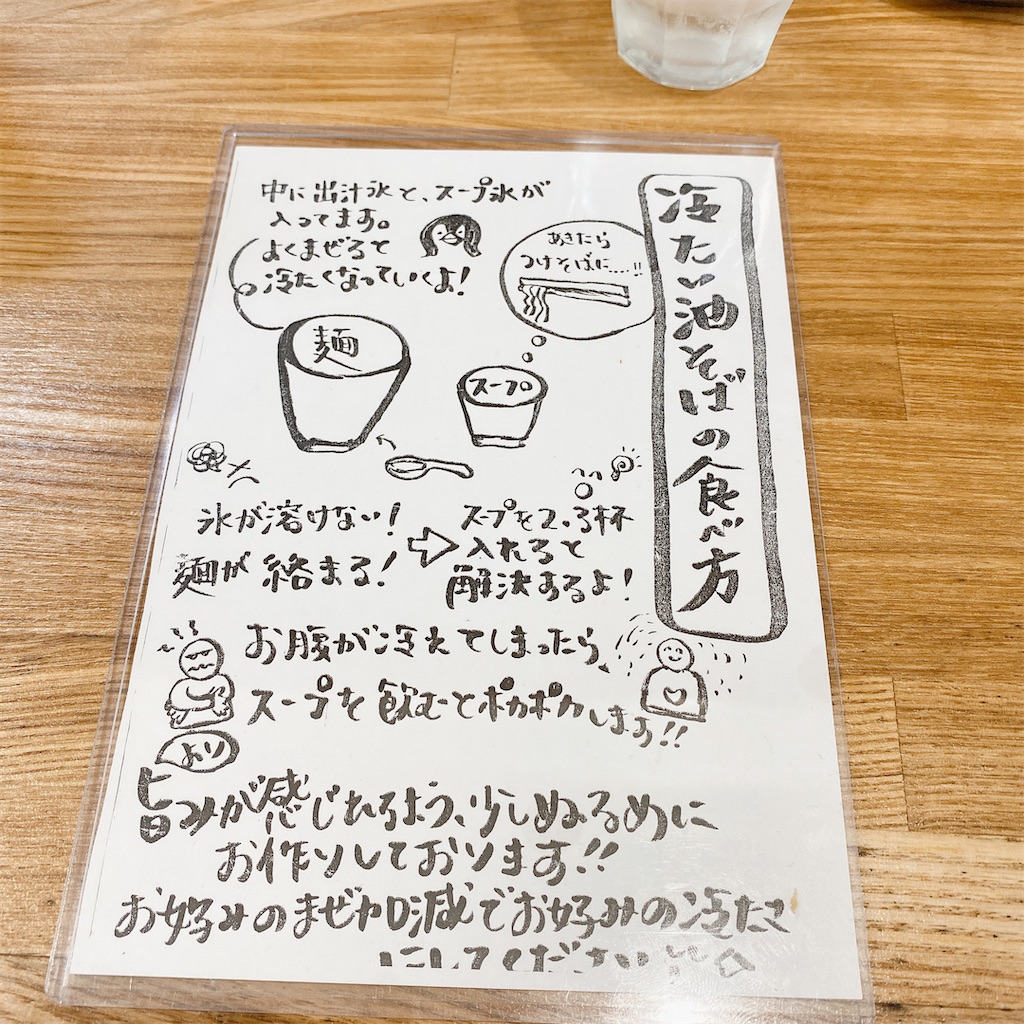 冷たい油そばの食べ方
中に出汁氷と、スープ氷が
入ってます。
よくまぜると
冷たくなっていくよ!
あきたら
つけそばに....!!
麺
スープ
氷が溶けない!
麺が絡まる!
スープを2、3杯
入れると
解決するよ!
お腹が冷えてしまったら、
スープを飲むとポカポカします!!
より
旨みが感じれるよう、少しぬるめに
お作りしております!!
お好みのまぜ加減でお好みの冷たさ
にしてください